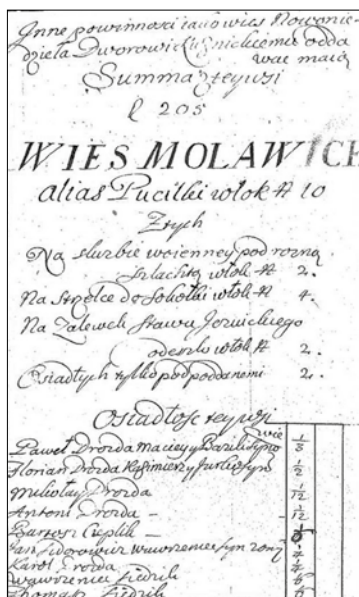 Inne powinności iako wies Nowanie-
dziela Dworowi Kuźnickiemu odda
wać maią
Summa z teywsi
ł 205
WIES MOLAWICE
alias Puciłki włok # 10
Z tych
Na służbie woienney pod rożną
szlachtą włok # 2.
Na Strzelce do Sokołki włok # 4.
Na Zalewek Stawu
odeszło włok # 2.
Osiadłych tylko pod poddanemi 2.
Osiadłosc teywsi
Paweł Drozda Maciey y Bazili Syno
wie 1/3
Florian Drozda Kazimierz y Jurko Syn 1/2
Mikołay Drozda 1/12
Antoni Drozda – 1/12
Bartosz Cieplik –
Jan Sidorowicz Wawrzeniec syn
Karol Drozda
Wawrzeniec Fiedzik
Thomasz Fiedzik